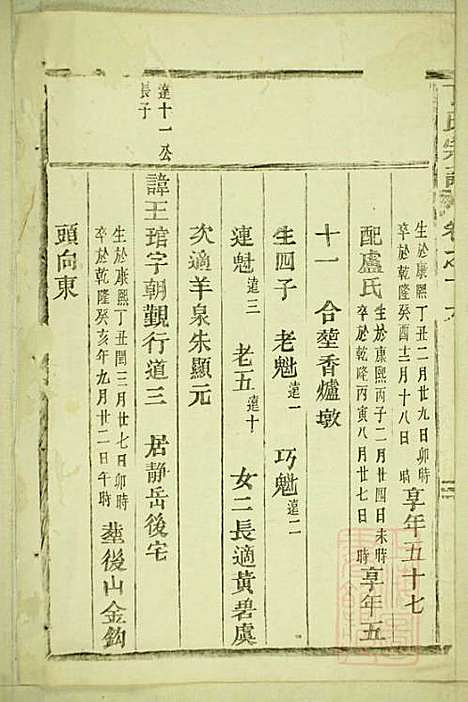 丁氏宗譜
生於康熙丁丑二月廿九日卯時
卒於乾隆癸酉十二月十八日 時
享年五十七
配盧氏
生於康熙丙子二月廿四日未時
卒於乾隆丙寅八月廿七日 時
享年五
十一 合塟香爐墩
生四子 老魁遠一 巧魁遠二
連魁遠三 老五遠十 女二長適黃碧虞
次適羊泉朱顯元
達十一公
長子
諱王琯字朝覲行道三 居静岳後宅
生於康熙丁丑閏三月廿七日卯時
卒於乾隆癸亥年九月廿二日午時
塟後山金鈎
頭向東